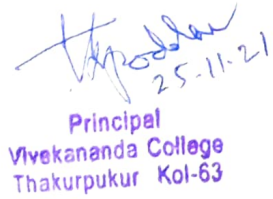 25-11-21
Principal
Vivekananda College
Thakurpukur Kol-63